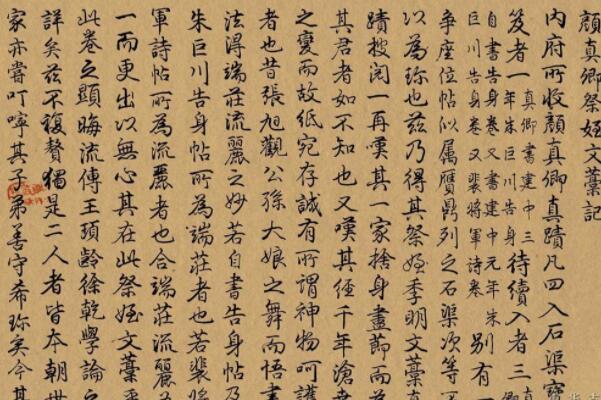 顔真卿祭姪文藁記
内府所收顔真卿真蹟凡四入石渠寶
笈者一真卿書建中三年朱巨川告身待續入者三
自書告身卷又書建中元年朱巨川告身卷又裴將軍詩卷别有一
争座位帖似属贗鼎列之石渠次等
以為珎也兹乃得其祭姪季明文
蹟披閱一再嘆其一家捨身盡節而
其君者如不知也又嘆其經千年滄
之變而故紙宛存誠有所謂神物呵護
者也昔張旭觀公孫大娘之舞而悟書
法得端莊流麗之妙若自書告身帖
朱巨川告身帖所為端莊者也若裴將
軍詩帖所為流麗者也合端莊流麗
一而更出以無心其在此祭姪文藁
此卷之顯晦流傳王頊齡徐乾學論之
詳矣兹不復贅獨是二人者皆本朝世
家亦嘗叮嚀其子弟善守希珎矣今其